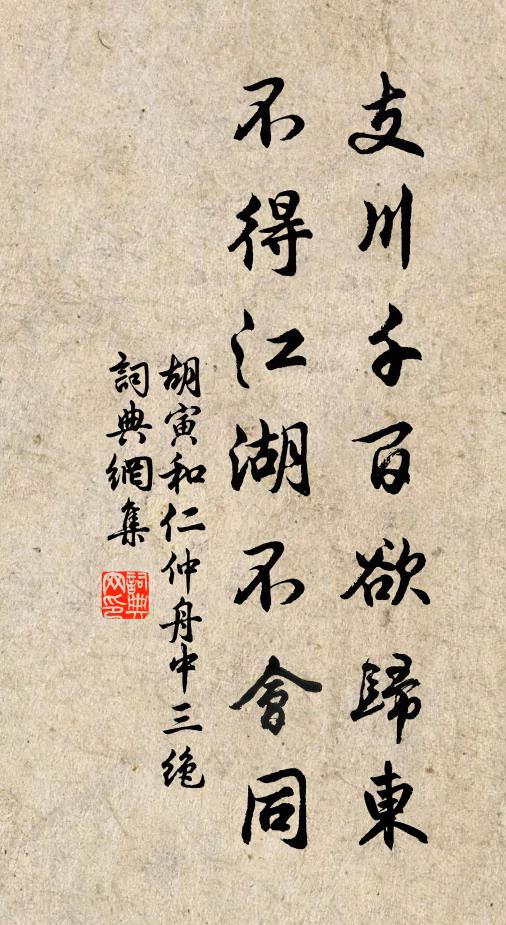 支川千百欲歸東
不得江湖不會同
胡寅和仁仲舟中三绝
詞典網集
詞典网印